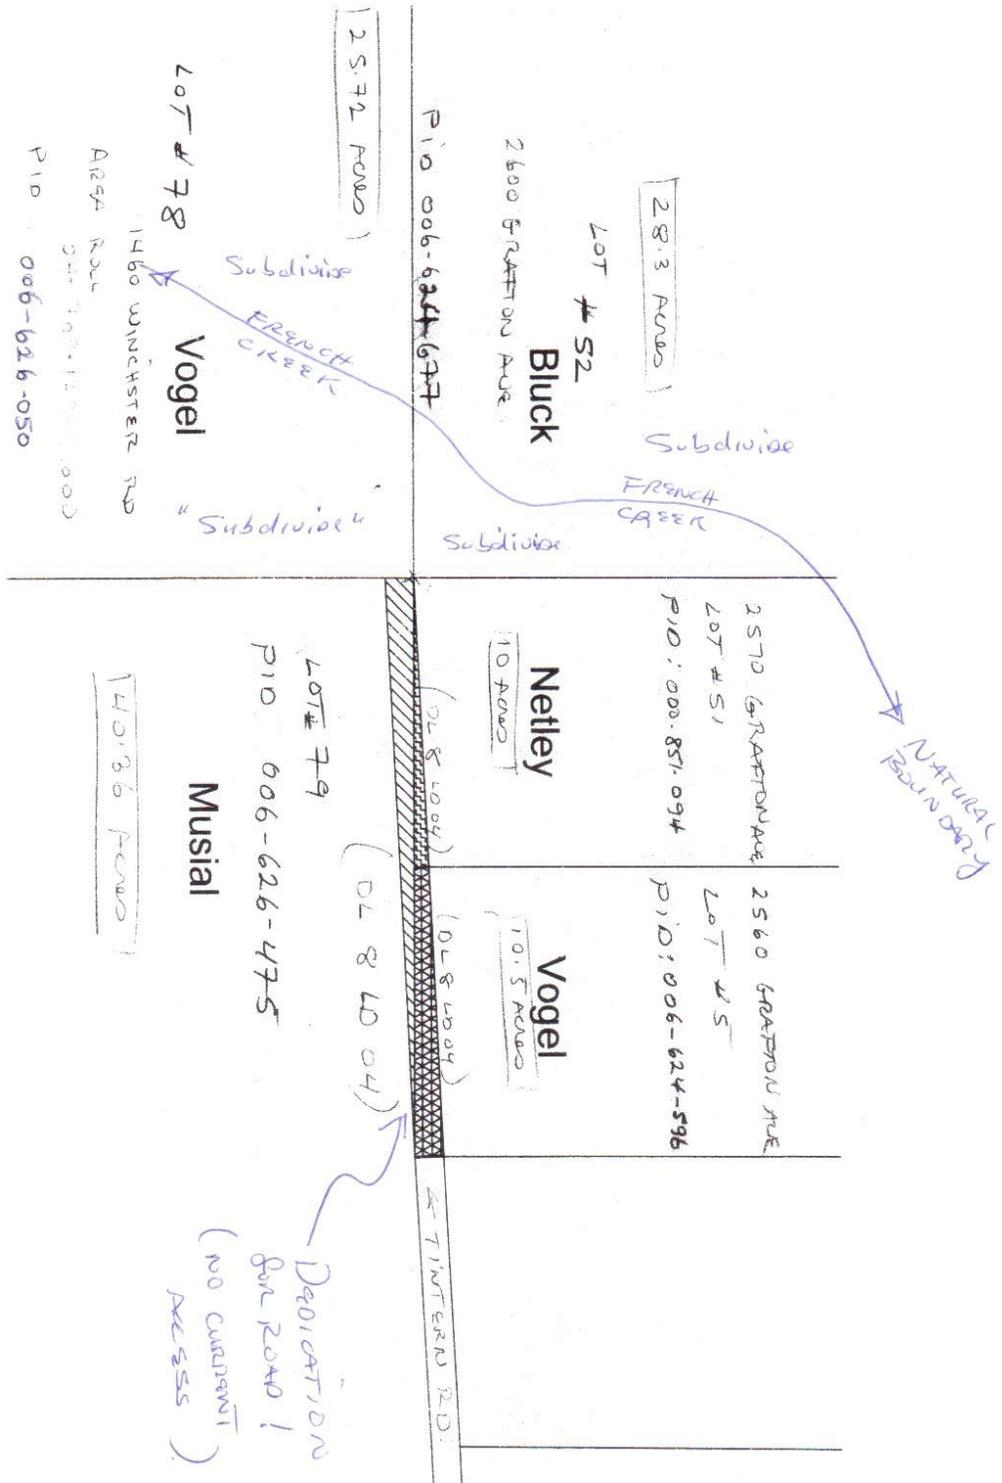 28.3 Acres
LOT # 52
Bluck
2600 GRAFTON AVE
PID 006-624-677
Subdivide
FRENCH
CREEK
Subdivide
NATURAL
BOUNDARY
25.72 Acres
LOT # 78
Subdivide
FRENCH
CREEK
Vogel
1460 WINCHSTER RD
AREA ROLL
PID 006-626-050
"Subdivide"
2570 GRAFTON AVE
LOT # 51
PID: 000-851-094
Netley
10 Acres
(DL 8 LD04)
2560 GRAFTON AVE
LOT # 5
PID: 006-624-596
Vogel
10.5 Acres
(DL 8 LD04)
LOT # 79
PID 006-626-475
(DL 8 LD 04)
Musial
40.36 Acres
TINTERN RD.
DEDICATION
FOR ROAD!
(NO CURRENT
ACCESS)